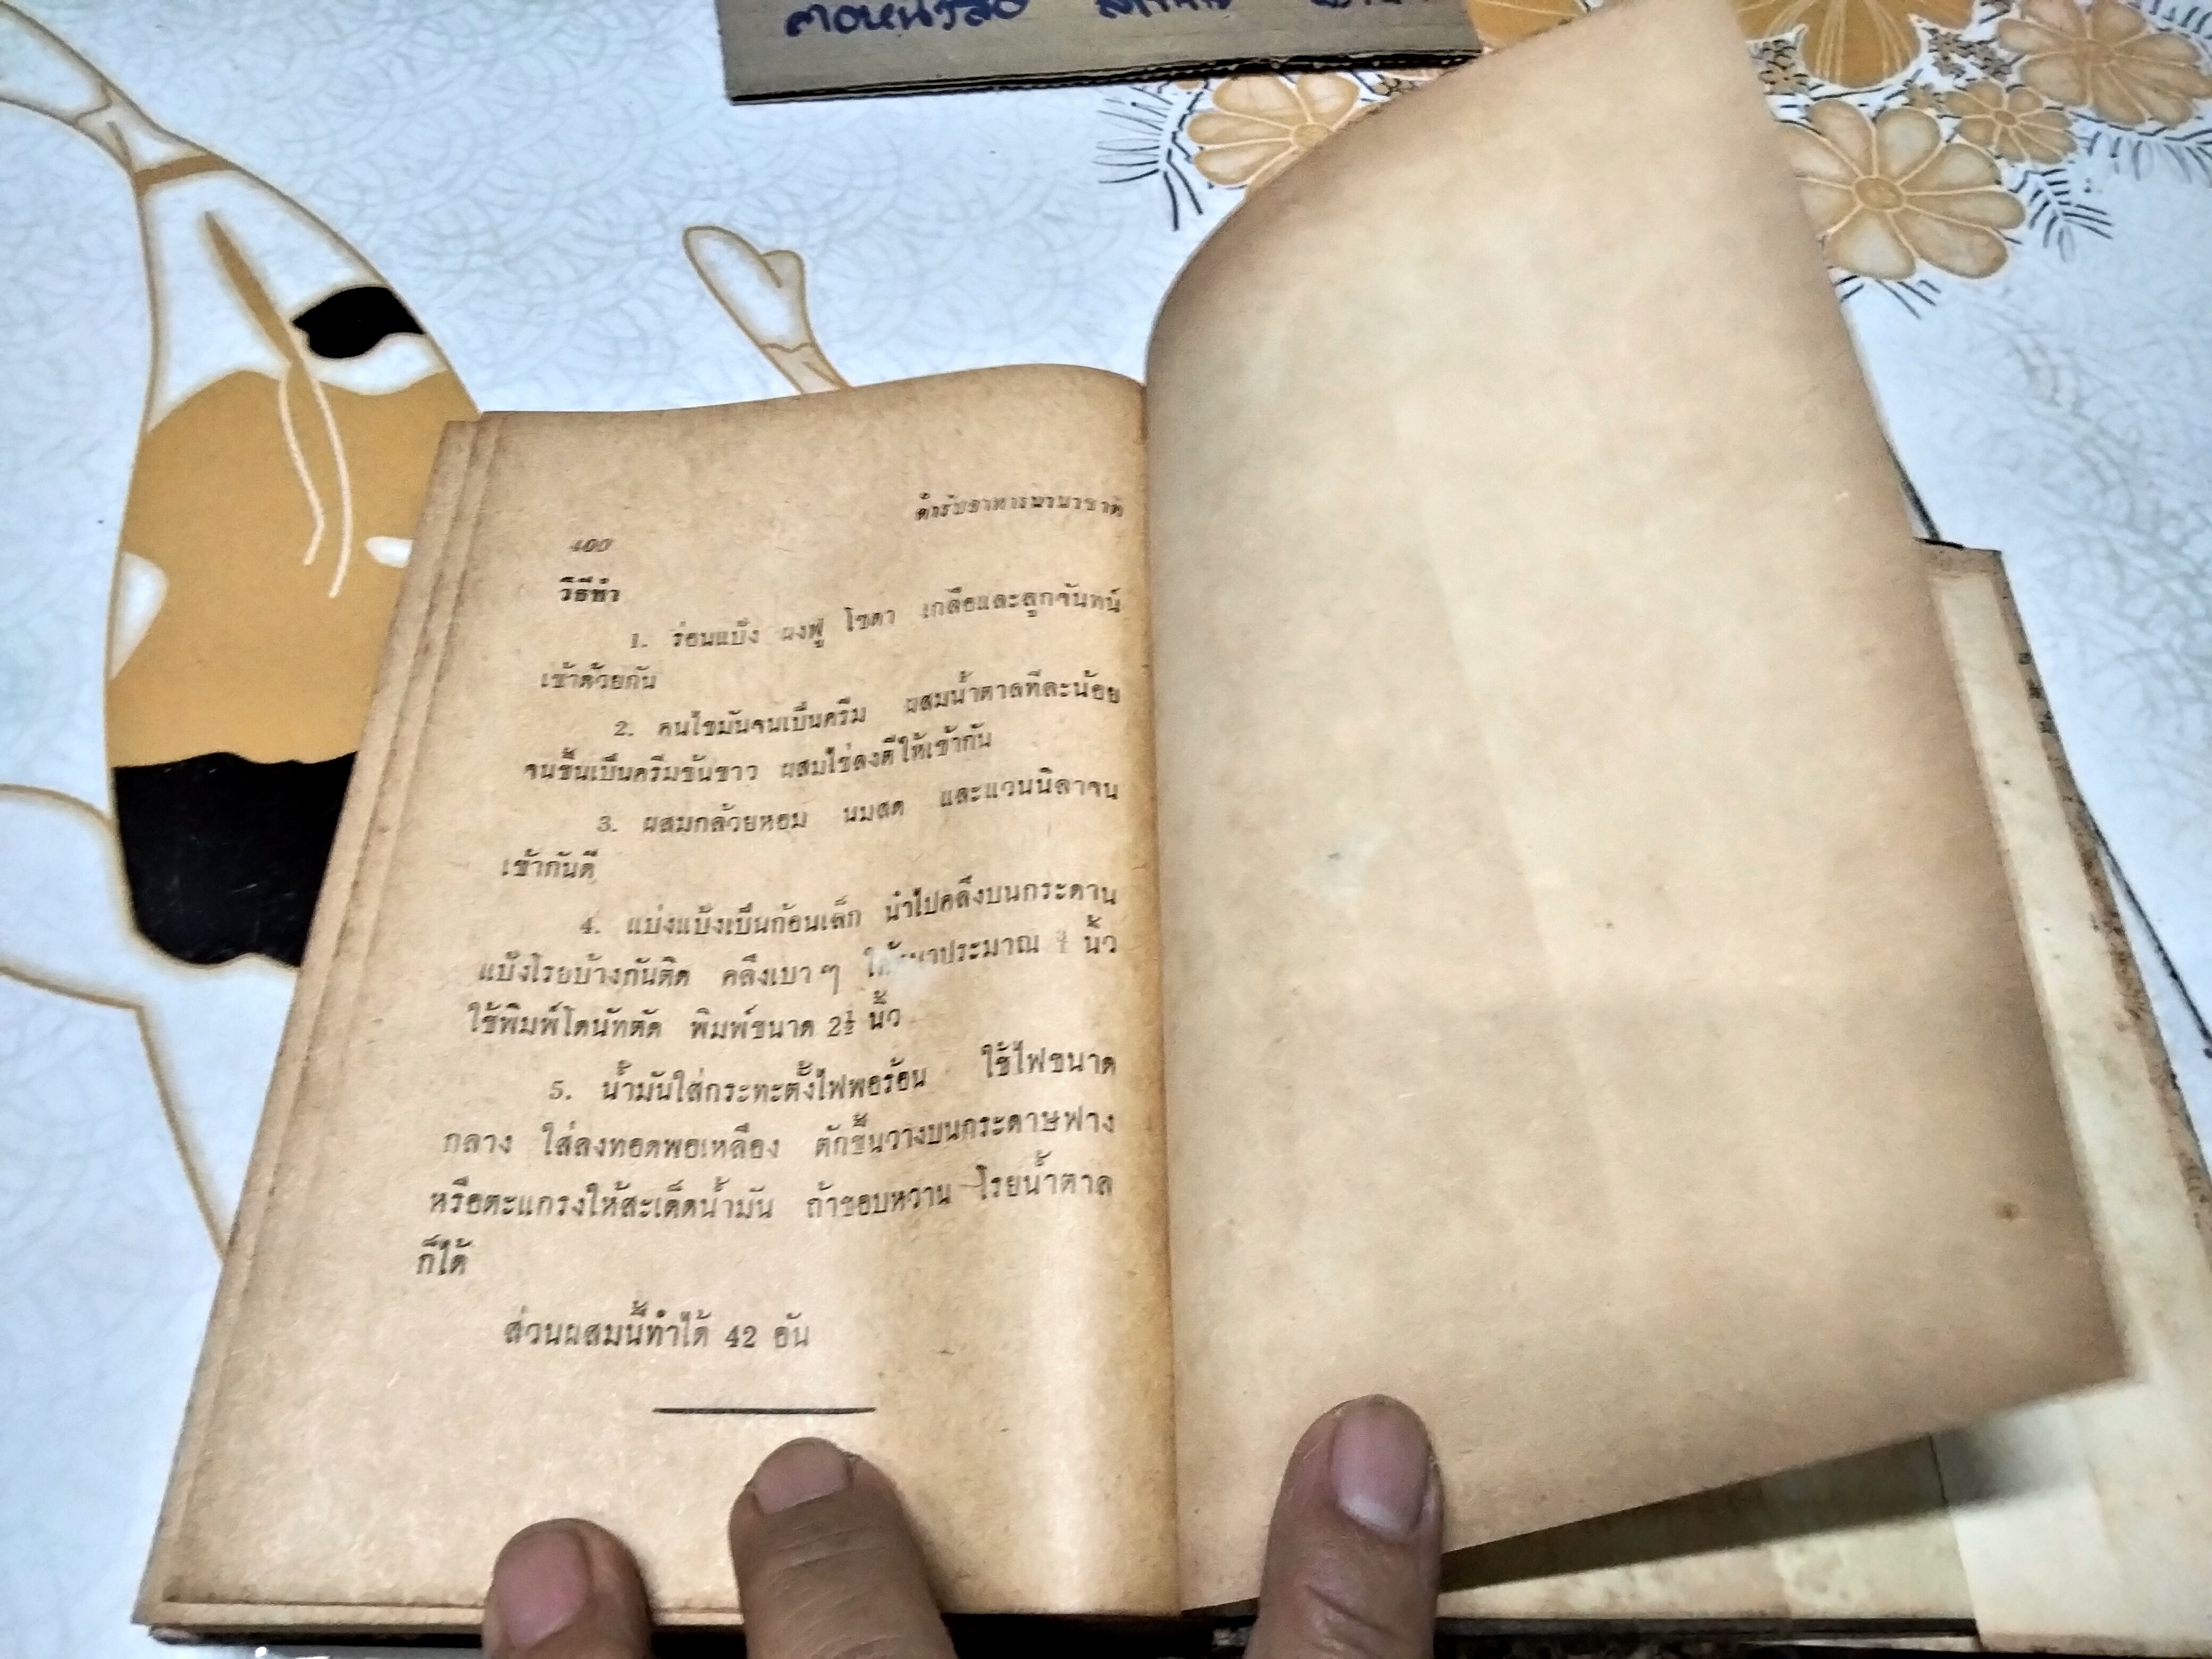 400
ตำรับอาหารนานาชาติ
วิธีทำ
1. ร่อนแป้ง ผงฟู โซดา เกลือและลูกจันทน์
เข้าด้วยกัน
2. คนไขมันจนเป็นครีม ผสมน้ำตาลทีละน้อย
จนขึ้นเป็นครีมข้นขาว ผสมไข่ลงตีให้เข้ากัน
3. ผสมกล้วยหอม นมสด และแวนนิลาจน
เข้ากันดี
4. แบ่งแป้งเป็นก้อนเล็ก นำไปคลึงบนกระดาน
แป้งโรยบ้างกันติด คลึงเบา ๆ ให้หนาประมาณ นิ้ว
ใช้พิมพ์โดนัทตัด พิมพ์ขนาด 2½ นิ้ว
5. น้ำมันใส่กระทะตั้งไฟพอร้อน ใช้ไฟขนาด
กลาง ใส่ลงทอดพอเหลือง ตักขึ้นวางบนกระดาษฟาง
หรือตะแกรงให้สะเด็ดน้ำมัน ถ้าชอบหวาน โรยน้ำตาล
ก็ได้
ส่วนผสมนี้ทำได้ 42 อัน